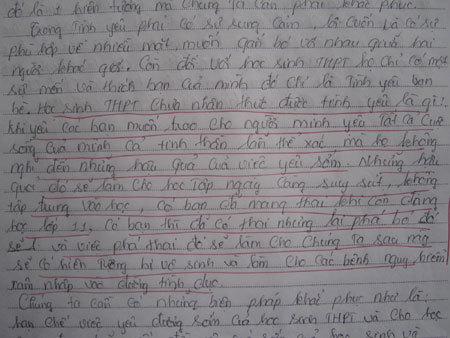 đó là 1 hiện tượng mà Chúng Ta Cần phải khắc phục.
Trong Tình yêu phải có sự rung Cảm, lôi Cuốn và có sự
phù hợp về nhiều mặt, muốn gắn bó với nhau giữa hai
người khác giới. Còn đối với học sinh THPT họ Chỉ có một
sự mến và thích bạn Của mình đó Chỉ là Tình yêu bạn
bè. Học Sinh THPT Chưa nhận thức được tình yêu là gì.
khi yêu Các bạn muốn trao Cho người mình yêu Tất Cả Cuộc
Sống Của mình Cả tinh thần lẫn thể xác, mà họ không
nghĩ đến những hậu quả Của việc yêu sớm. Những hậu
quả đó sẽ làm Cho học Tập ngày Càng suy sút, không
tập trung vào học, Có bạn đã mang thai khi Còn đang
học lớp 11, Có bạn thì đã Có thai nhưng lại phá bỏ đó
và việc phá thai đó sẽ làm Cho Chúng Ta sau này
sẽ Có hiện tượng bị vô sinh và làm Cho Các bệnh nguy hiểm
xâm nhập vào đường tình dục.
Chúng ta cần Có những biện pháp khắc phục như là:
hạn Chế việc yêu đương sớm Của học sinh THPT và Cho học
sinh và